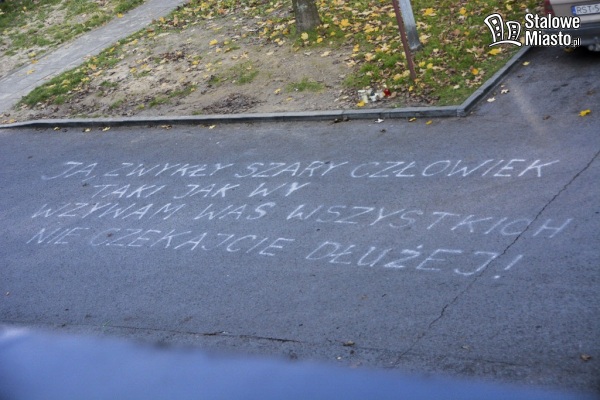 Stalowe
Miasto.pl
JA, ZWYKŁY SZARY CZŁOWIEK
TAKI JAK WY
WZYWAM WAS WSZYSTKICH
NIE CZEKAJCIE DŁUŻEJ!